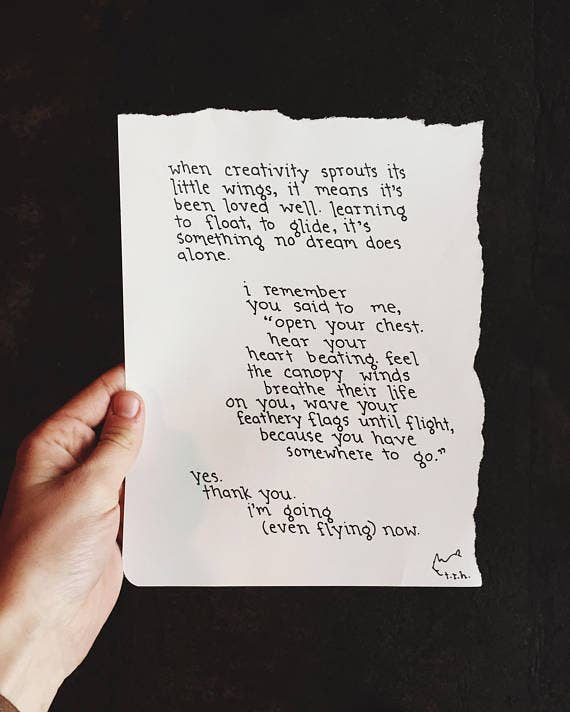 when creativity sprouts its
little wings, it means it's
been loved well. learning
to float, to glide, it's
something no dream does
alone.
i remember
you said to me,
"open your chest.
hear your
heart beating. feel
the canopy winds
breathe their life
on you, wave your
feathery flags until flight,
because you have
somewhere to go."
yes.
thank you.
i'm going
(even flying) now.
t.r.h.